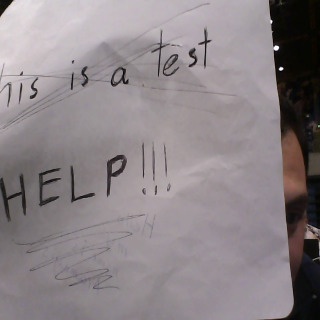 this is a test
HELP!!!